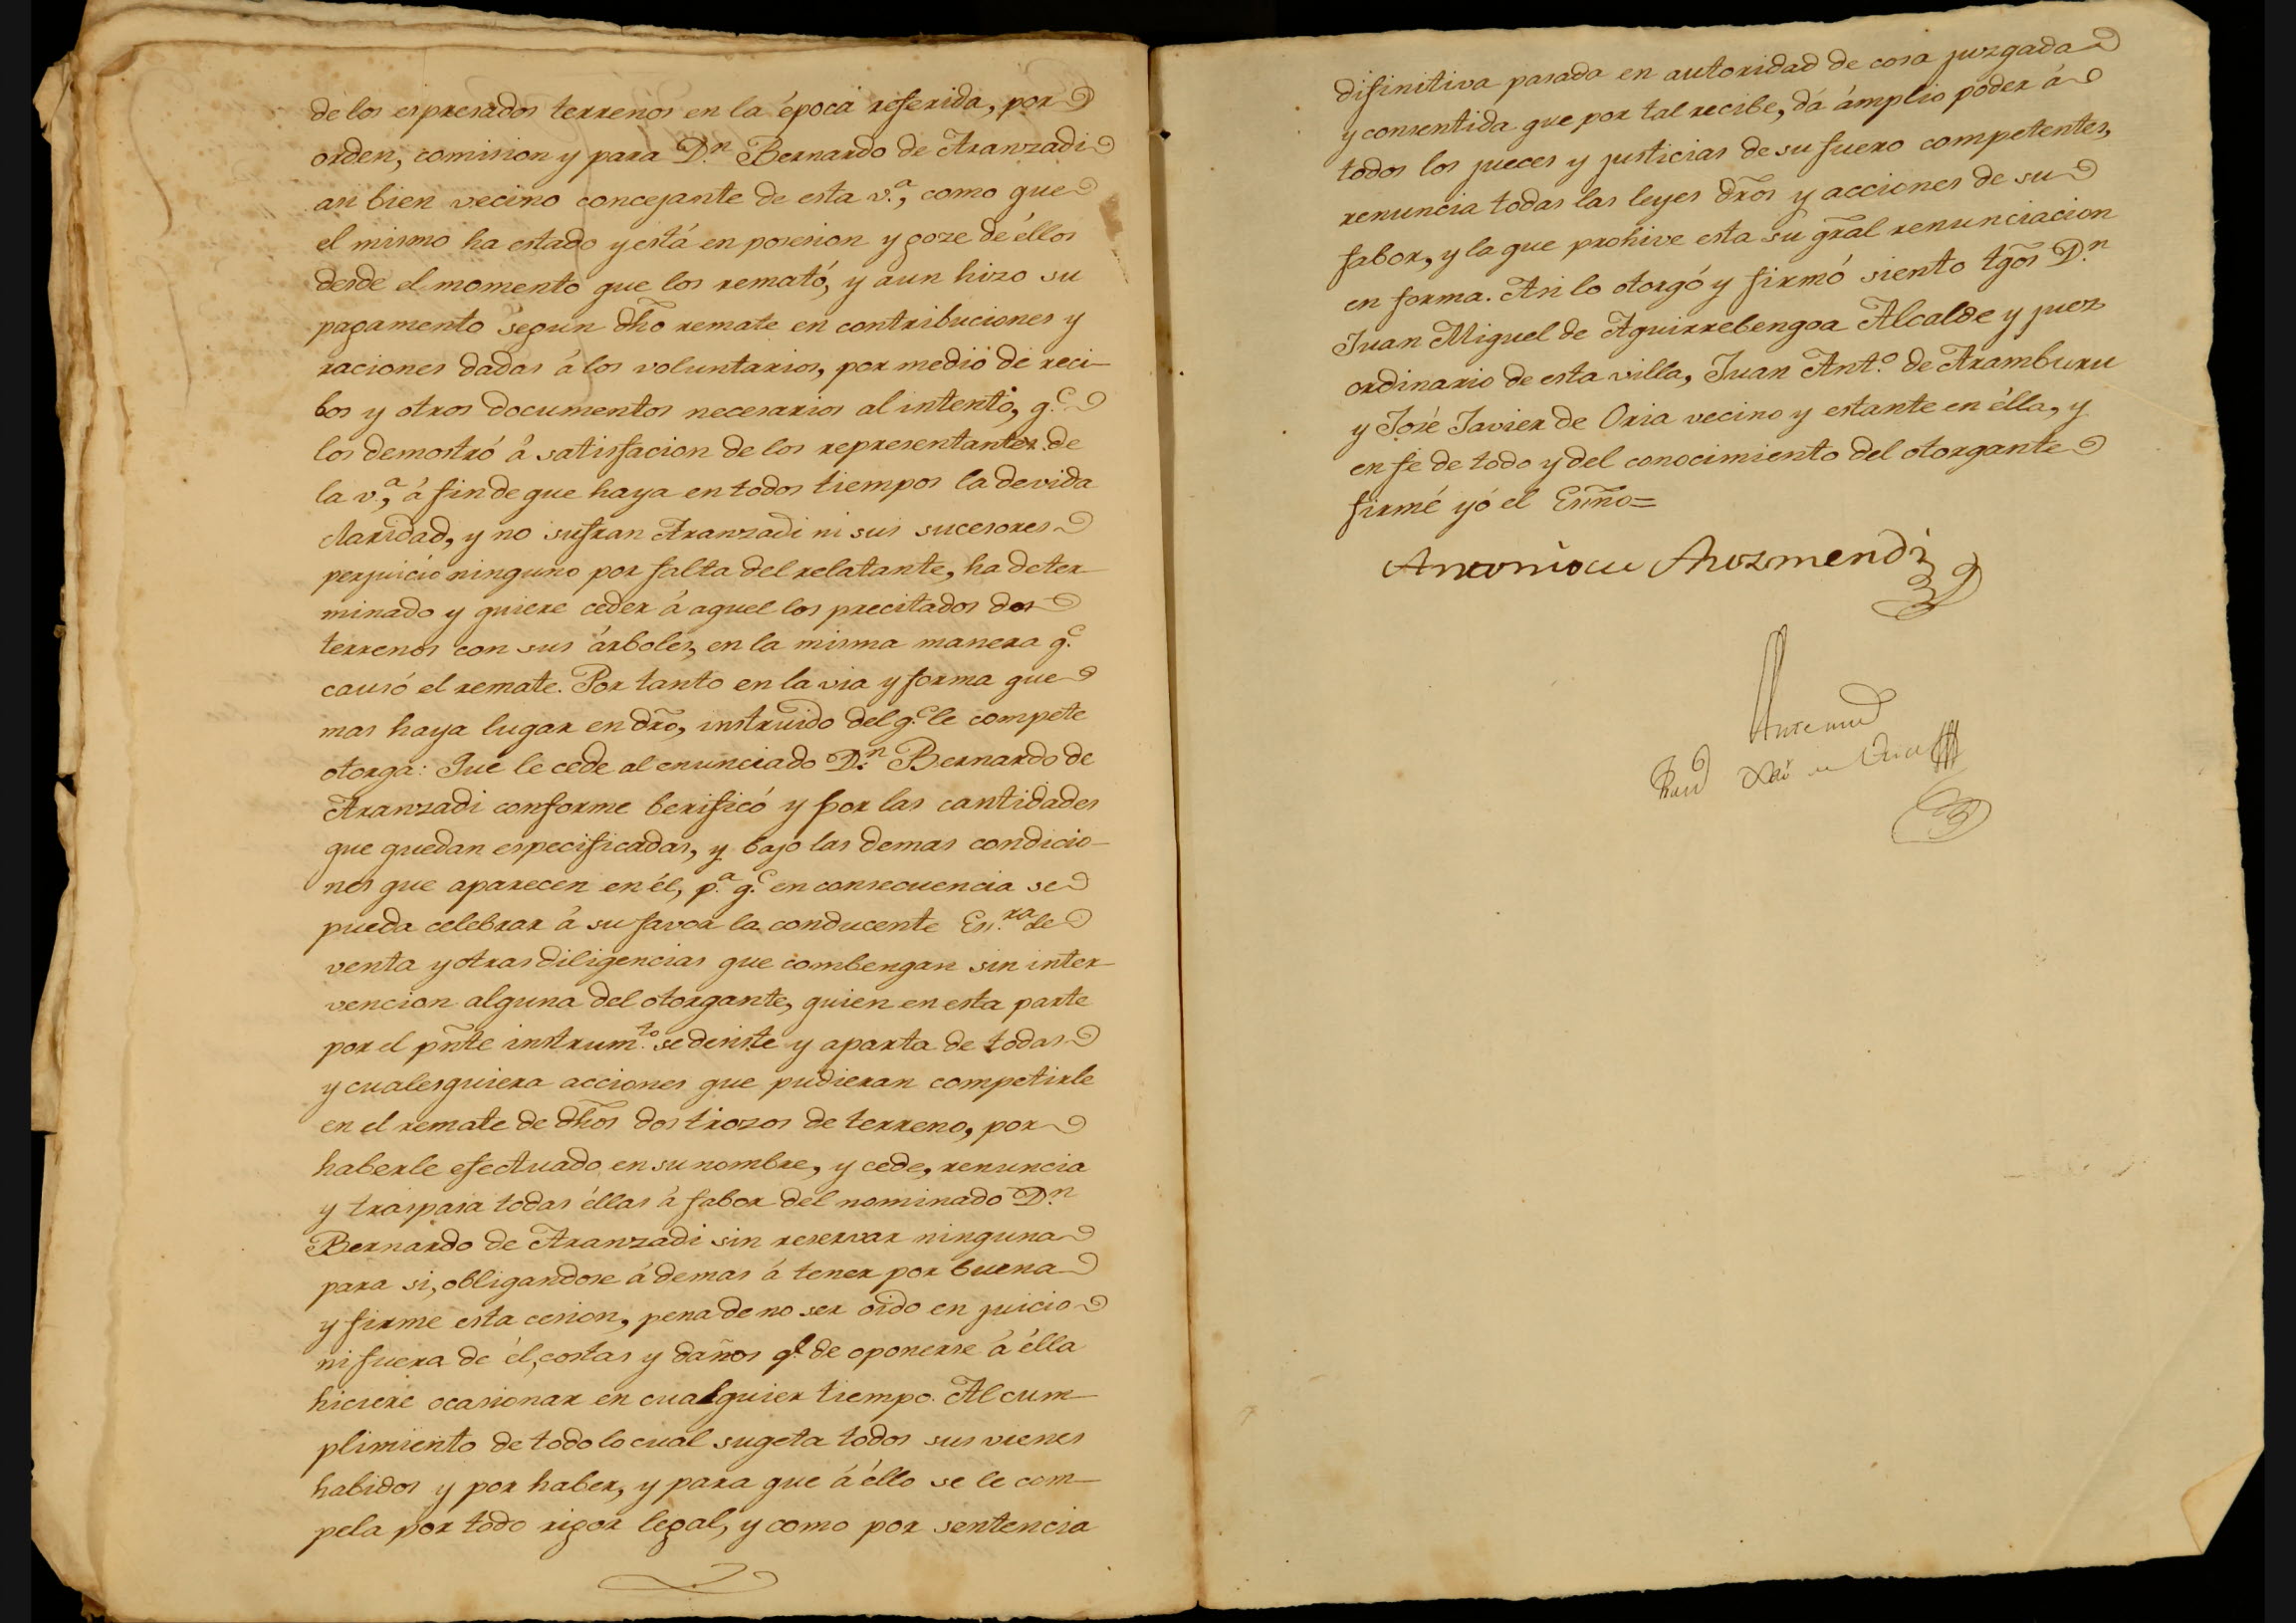 de los espresados terrenos en la época referida, por
orden, comision y para D.n Bernardo de Aranzadi
asi bien vecino concejante de esta v.a, como que
el mismo ha estado y está en posesion y goze de éllos
desde el momento que los remató, y aun hizo su
pagamento segun dho remate en contribuciones y
raciones dadas á los voluntarios, por medio de reci-
bos y otros documentos necesarios al intento, q.e
los demostró á satisfacion de los representantes de
la v.a, á fin de que haya en todos tiempos la devida
claridad, y no sufran Aranzadi ni sus sucesores
perjuicio ninguno por falta del relatante, ha deter-
minado y quiere ceder á aquel los precitados dos
terrenos con sus árboles, en la misma manera q.e
causó el remate. Por tanto en la via y forma que
mas haya lugar en dro, instruido del q.e le compete
otorga: Que le cede al enunciado D.n Bernardo de
Aranzadi conforme berificó y por las cantidades
que quedan especificadas, y bajo las demas condicio-
nes que aparecen en él, p.a q.e en consecuencia se
pueda celebrar á su favor la conducente Es.ra de
venta y otras diligencias que combengan sin inter-
vencion alguna del otorgante, quien en esta parte
por el pnte instrum.to se deniste y aparta de todas
y cualesquiera acciones que pudieran competirle
en el remate de dhos dos trozos de terreno, por
haberle efectuado en su nombre, y cede, renuncia
y traspasa todas éllas á fabor del nominado D.n
Bernardo de Aranzadi sin reservar ninguna
para si, obligandose ádemas á tener por buena
y firme esta cesion, pena de no ser oido en juicio
ni fuera de él, costas y daños q.e de oponerse á élla
hiciere ocasionar en cualquier tiempo. Al cum-
plimiento de todo lo cual sugeta todos sus vienes
habidos y por haber, y para que á éllo se le com-
pela por todo rigor legal, y como por sentencia
difinitiva pasada en autoridad de cosa juzgada
y consentida que por tal recibe, dá ámplio poder á
todos los jueces y justicias de su fuero competentes,
renuncia todas las leyes dros y acciones de su
fabor, y la que prohive esta su gral renunciacion
en forma. Asi lo otorgó y firmó siento tgos D.n
Juan Miguel de Aguirrebengoa Alcalde y juez
ordinario de esta villa, Juan Ant.o de Aramburu
y José Javier de Oria vecino y estante en élla, y
en fe de todo y del conocimiento del otorgante
firmé yó el Esno=
Antonio de Arozmendi
Ante mi